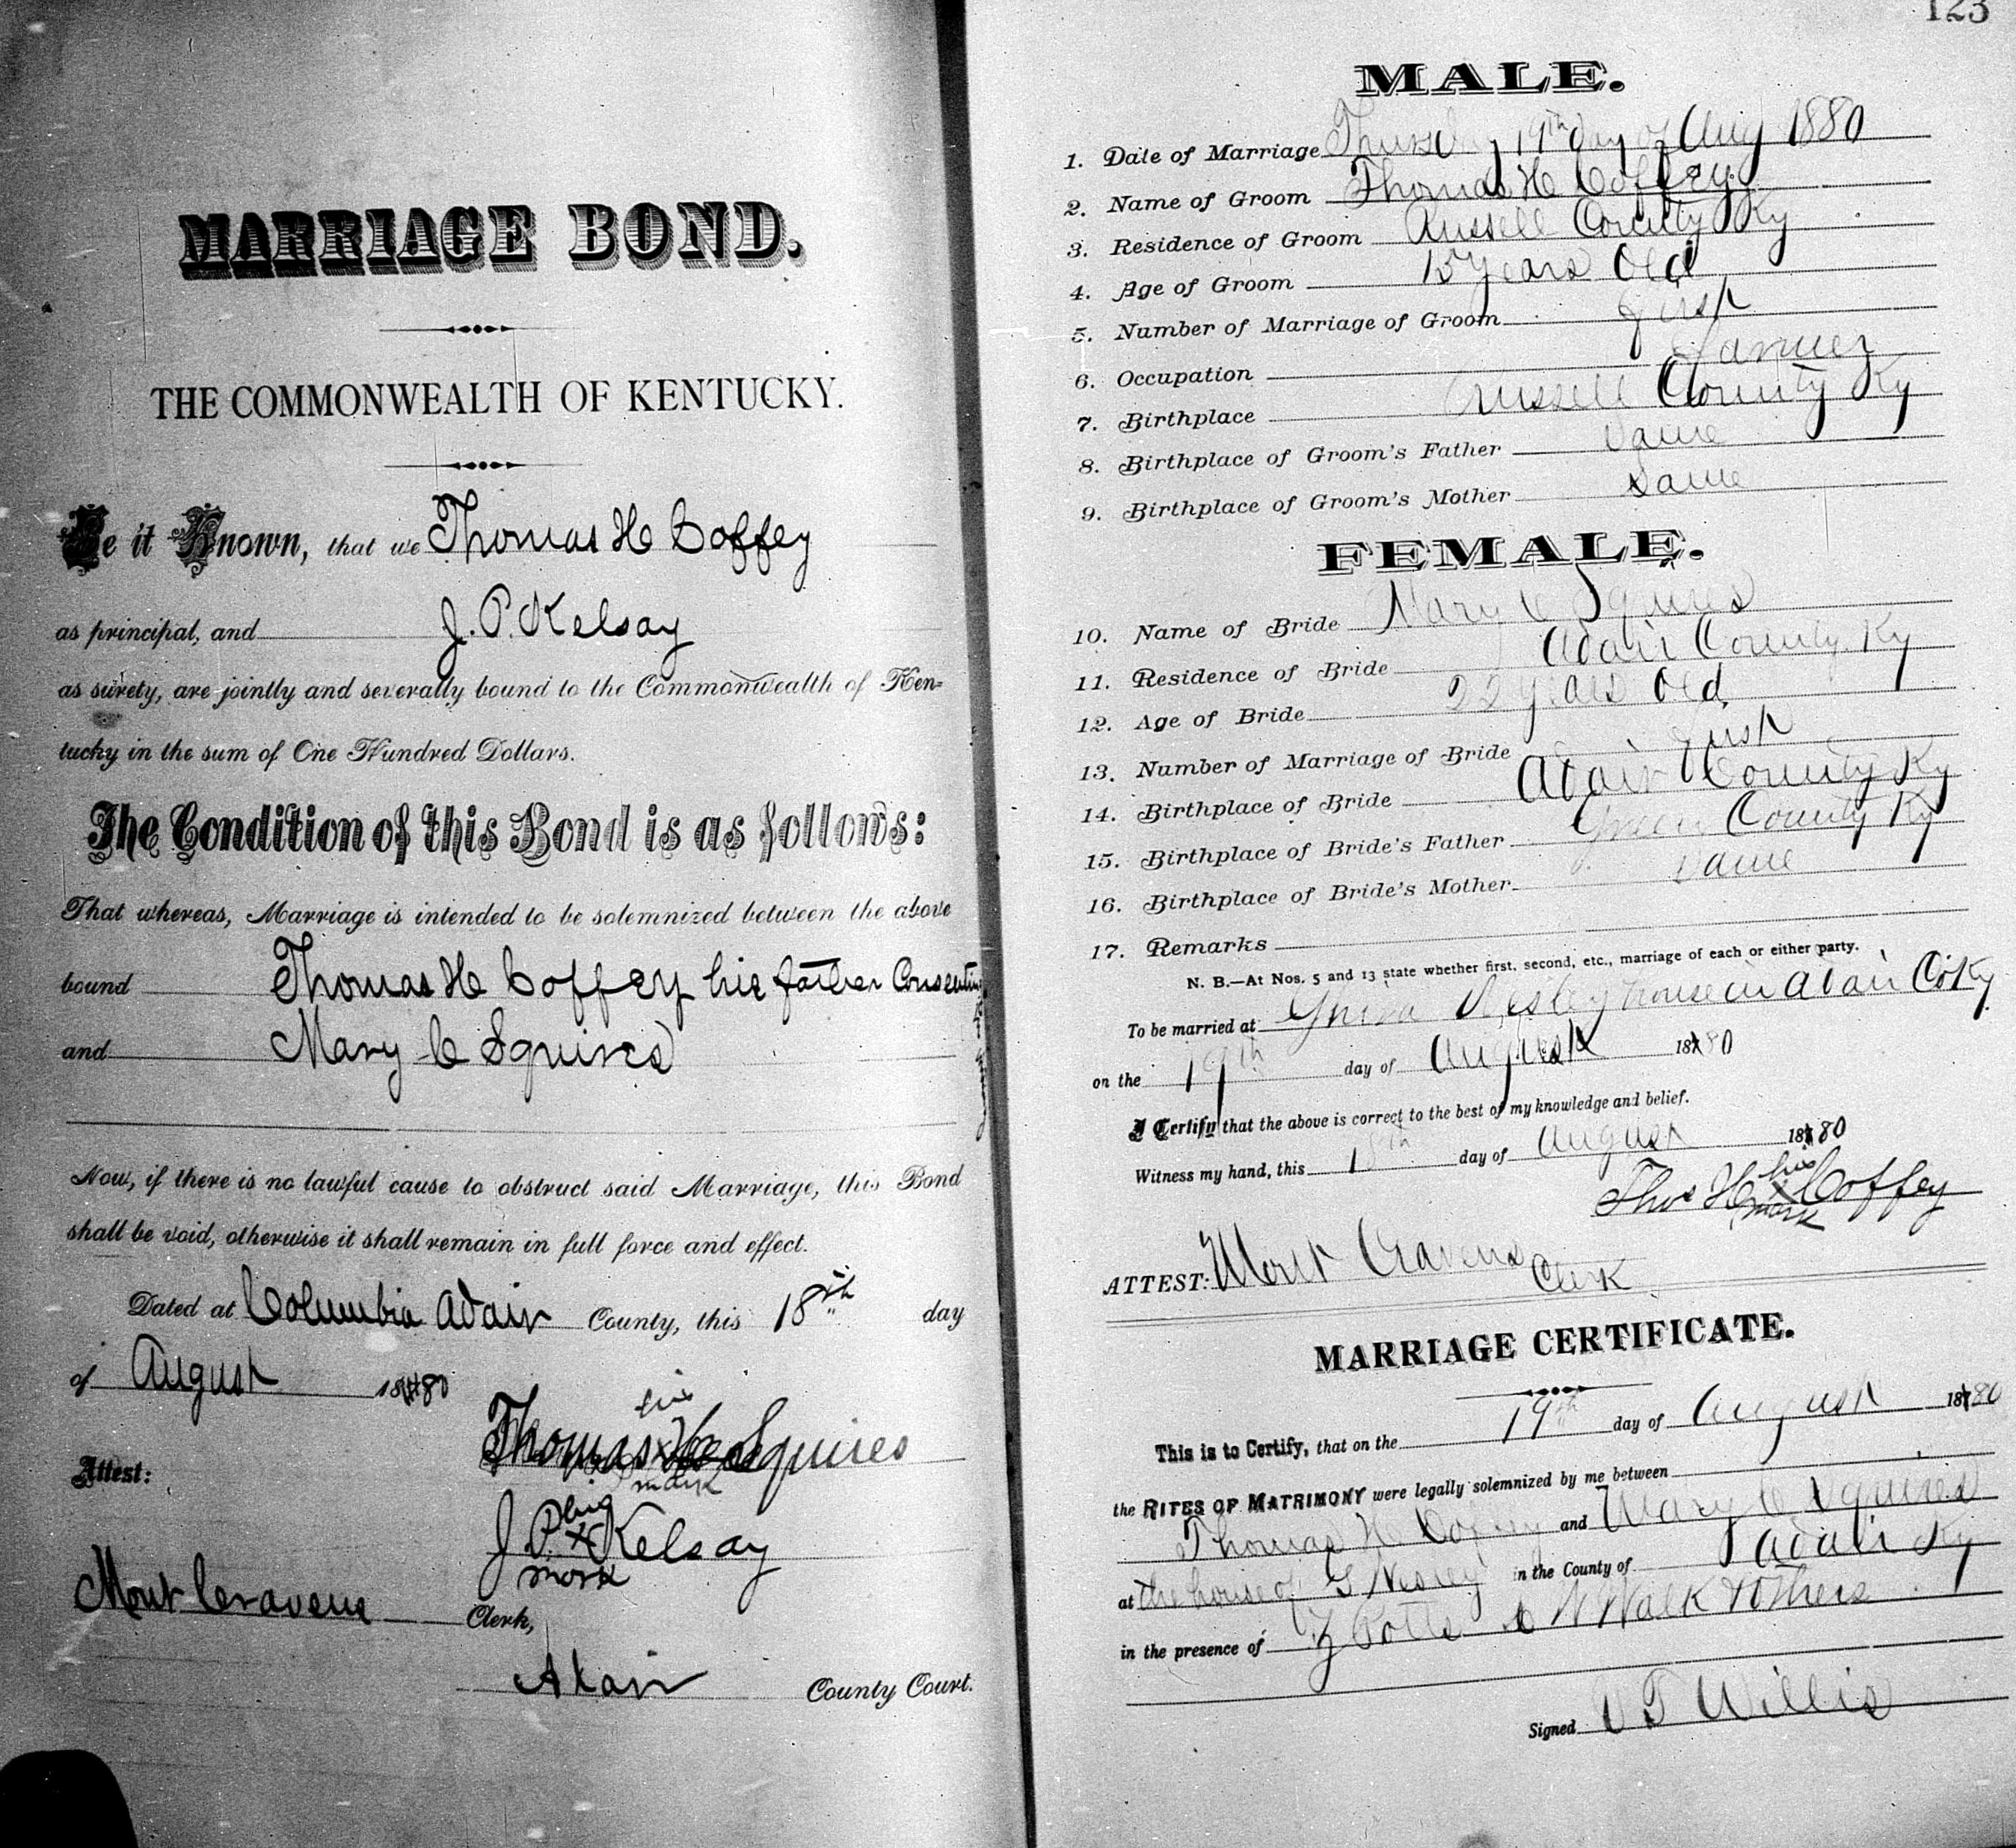 MARRIAGE BOND.
THE COMMONWEALTH OF KENTUCKY.
Be it Known, that we Thomas H Coffey
as principal, and J. P. Kelsay
as surety, are jointly and severally bound to the Commonwealth of Ken=
tucky in the sum of One Hundred Dollars.
The Condition of this Bond is as follows:
That whereas, Marriage is intended to be solemnized between the above
bound Thomas H Coffey his father Consenting
and Mary C Squires
Now, if there is no lawful cause to obstruct said Marriage, this Bond
shall be void, otherwise it shall remain in full force and effect.
Dated at Columbia Adair County, this 18th day
of August 1880
his
Attest: Thomas Squires
mark
his
J. P. x Kelsay
mark
Mont Cravens Clerk,
Adair County Court.
123
MALE.
1. Date of Marriage Thursday 19th day of Aug 1880
2. Name of Groom Thomas H Coffey
3. Residence of Groom Russell County Ky
4. Age of Groom years Old
5. Number of Marriage of Groom first
6. Occupation farmer
7. Birthplace Russell County Ky
8. Birthplace of Groom's Father Same
9. Birthplace of Groom's Mother Same
FEMALE.
10. Name of Bride Mary C Squires
11. Residence of Bride Adair County Ky
12. Age of Bride 22 years Old
13. Number of Marriage of Bride first
14. Birthplace of Bride Adair County Ky
15. Birthplace of Bride's Father Green County Ky
16. Birthplace of Bride's Mother Same
17. Remarks
N. B.—At Nos. 5 and 13 state whether first, second, etc., marriage of each or either party.
To be married at house in Adair Co Ky
on the 19th day of August 1880
I Certify that the above is correct to the best of my knowledge and belief.
Witness my hand, this 18th day of August 1880
his
Thos H x Coffey
mark
ATTEST: Mont Cravens Clerk
MARRIAGE CERTIFICATE.
This is to Certify, that on the 19th day of August 1880
the RITES OF MATRIMONY were legally solemnized by me between
Thomas H Coffey and Mary C Squires
at the house of G in the County of Adair Ky
in the presence of Z Potts & W Walk & Others
Signed Willis